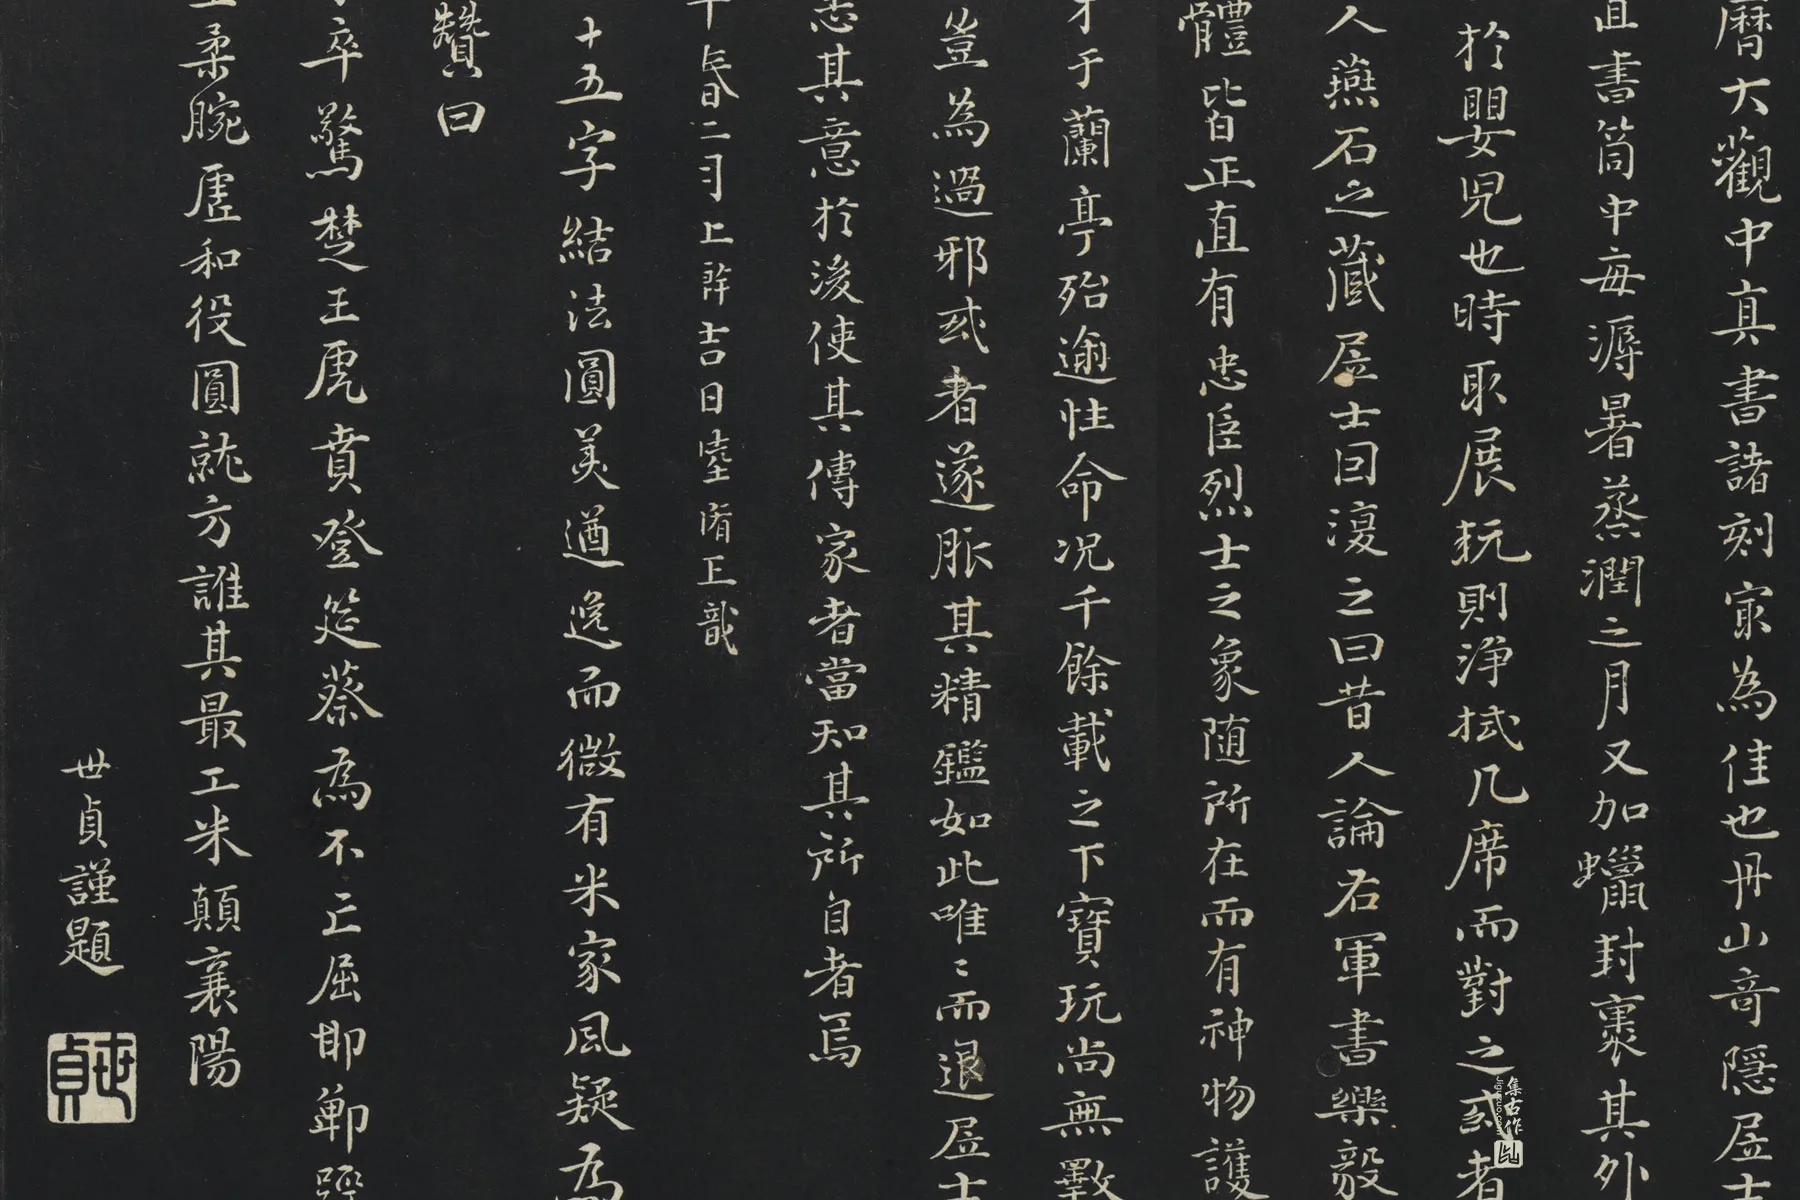 曆大觀中真書諸刻㝡為佳也丹山竒隱居士
直書筒中每溽暑蒸潤之月又加蠟封裹其外
於嬰児也時取展玩則浄拭几席而對之或者
人燕石之藏居士曰復之曰昔人論右軍書樂毅
體皆正直有忠臣烈士之象随所在而有神物護
于蘭亭殆逾性命况千餘載之下寶玩尚無斁
豈為過邪或者遂服其精鑑如此唯〻而退居士
志其意於後使其傳家者當知其所自者焉
年春二月上吉日
十五字結法圓美遒逸而微有米家風疑為
贊曰
卒驚楚王虎賁登筵蔡為不亡屈耶鄲
柔腕虛和役圓就方誰其最工米顛襄陽
世貞謹題
世貞
集古作